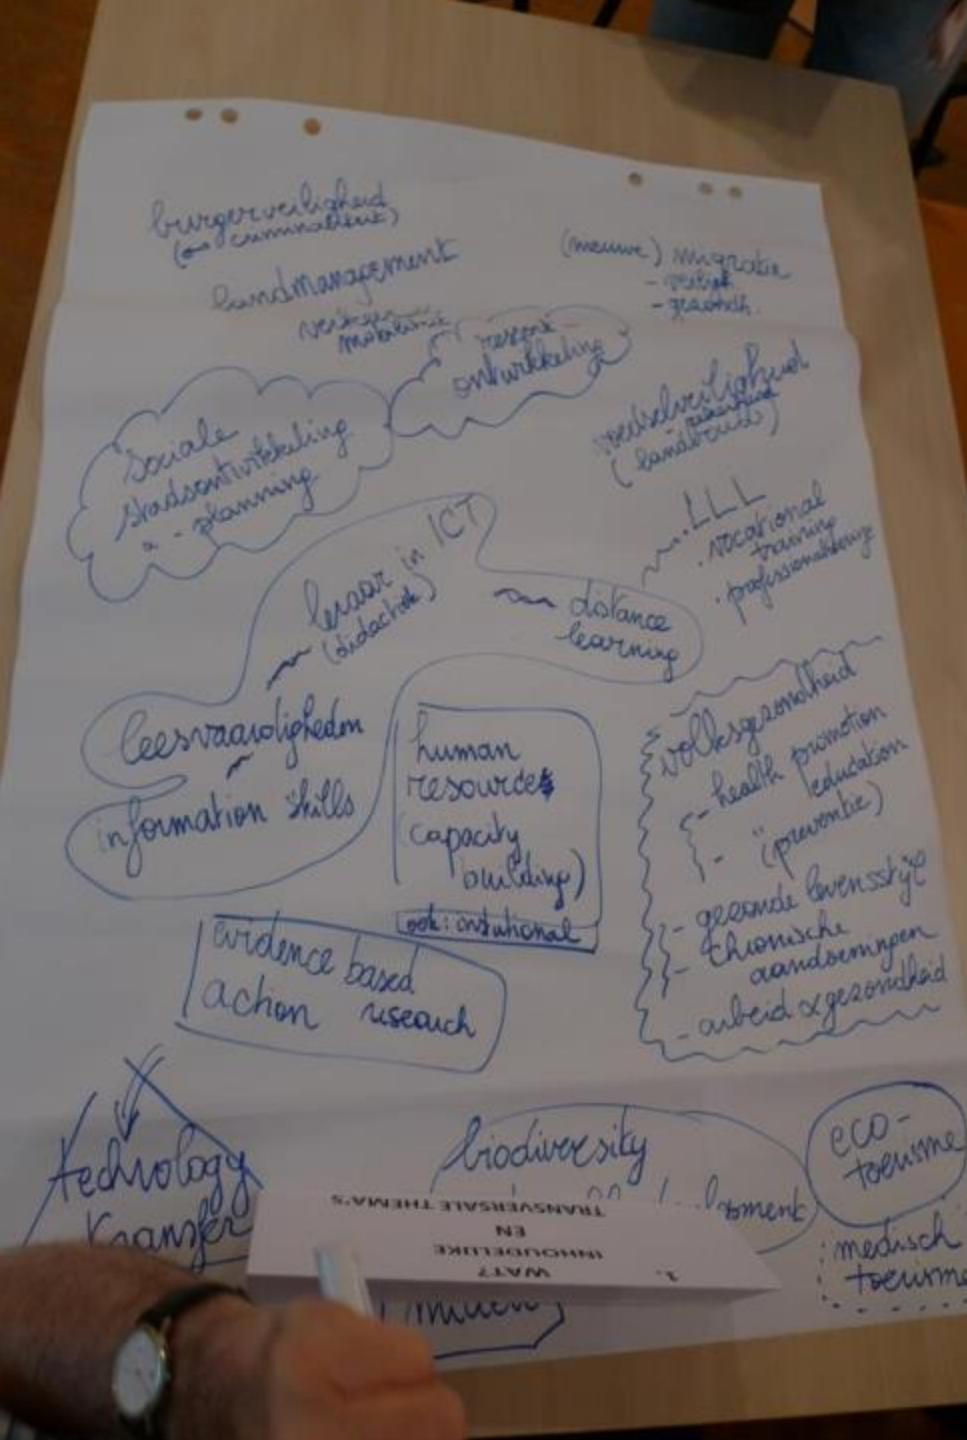 burgerveiligheid
(↔ criminaliteit)
landmanagement
mobiliteit
(nieuwe) migratie
- veiligh.
- gezondh.
ontwikkeling
Sociale
stadsontwikkeling
- planning
voedselveiligheid
(landbouw)
LLL
. vocational
training
. professionalisering
leraar in ICT
(didactiek)
distance
learning
leesvaardigheden
information skills
human
resources
(capacity
building)
ook: institutional
evidence based
action research
volksgezondheid
- health promotion
education
- " (preventie)
- gezonde levensstijl
- chronische
aandoeningen
- arbeid & gezondheid
technology
transfer
biodiversity
eco-
toerisme
medisch
toerisme
1. WAT?
INHOUDELIJKE
EN
TRANSVERSALE THEMA'S